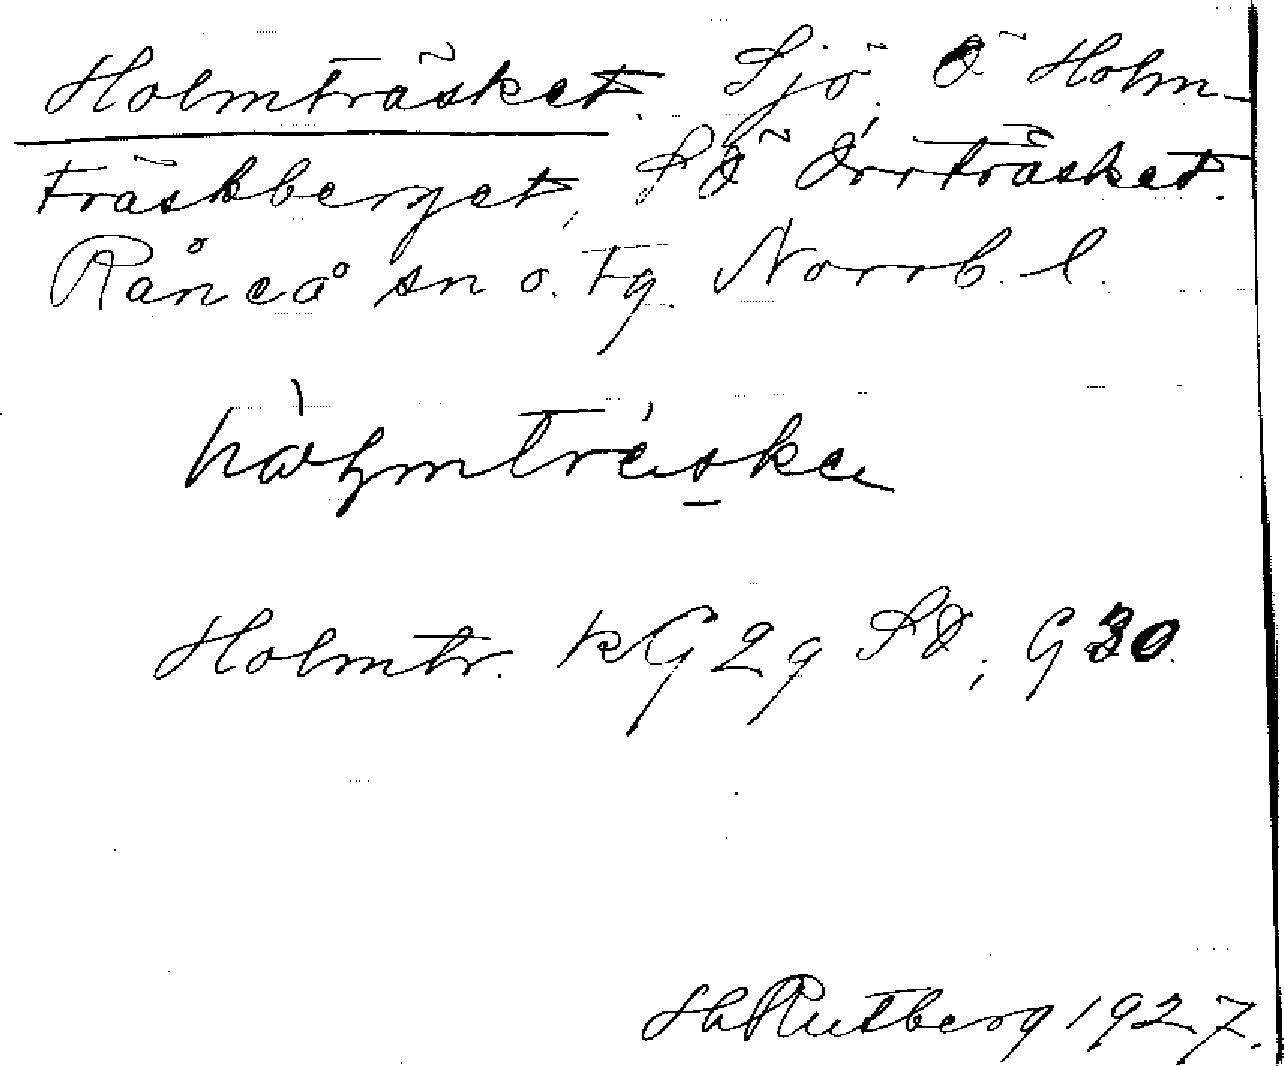 Holmträsket. Sjö. Ö Holm-
träskberget, SÖ Örrträsket.
Råneå sn o. tg. Norrb. l.
Holmtr. KG 29 SÖ, G 30.
Hl Rutberg 1927.